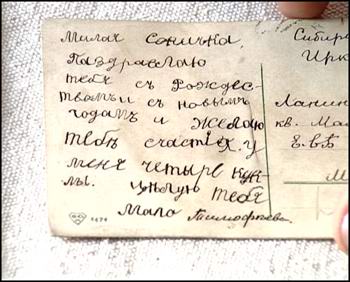 Милая Сонична,
Паздравлаю
тебя съ Рождес-
твамъ и съ новымъ
годамъ и желаю
тебѣ счастiех. у
меня четыре кук-
лы. цѣлую тебя
Мала Тимофѣева.
Сибир
Ирк
Ланин
кв. Ма